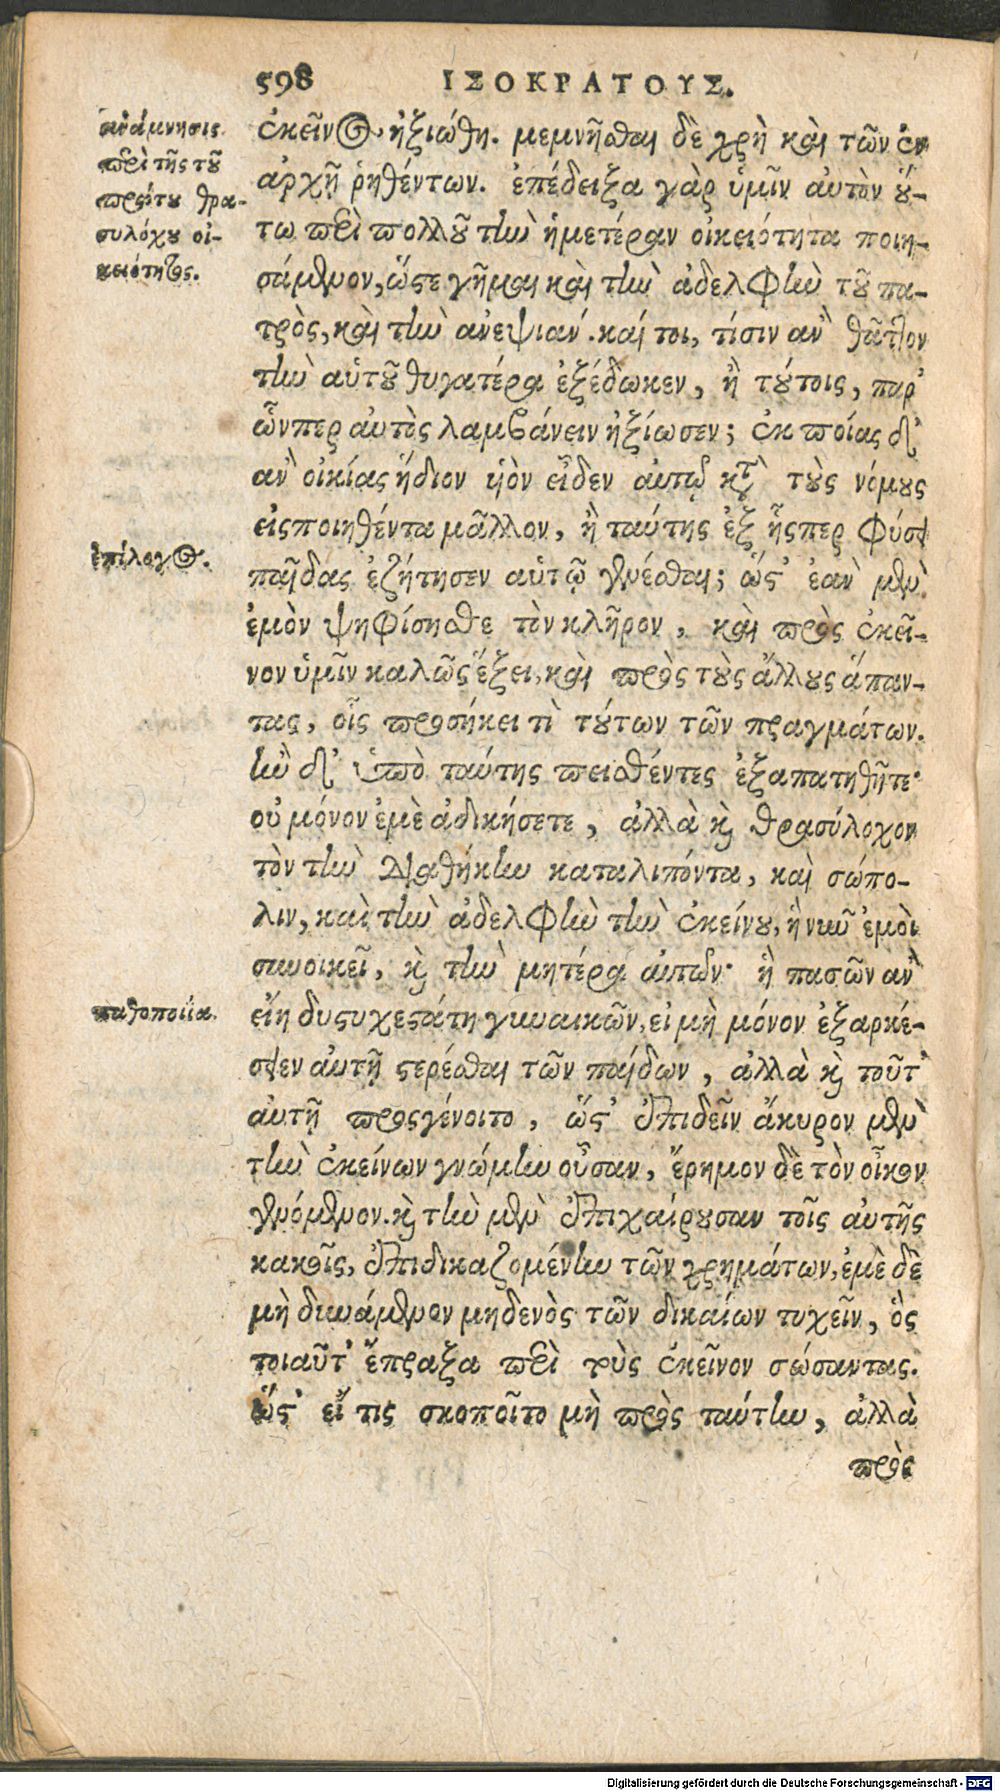 598 ΙΣΟΚΡΑΤΟΥΣ.
ἀνάμνησις
περὶ τῆς τοῦ
πρώτου θρα-
συλόχου οἰ-
κειότητος.
ἐκεῖνος ἠξιώθη. μεμνῆσθαι δὲ χρὴ καὶ τῶν ἐν
ἀρχῇ ῥηθέντων. ἐπέδειξα γὰρ ὑμῖν αὐτὸν οὕ-
τω περὶ πολλοῦ τὴν ἡμετέραν οἰκειότητα ποιη-
σάμενον, ὥστε γῆμαι καὶ τὴν ἀδελφὴν τοῦ πα-
τρὸς, καὶ τὴν ἀνεψιάν. καί τοι, τίσιν ἂν θᾶττον
τὴν αὑτοῦ θυγατέρα ἐξέδωκεν, ἢ τούτοις, παρ'
ὧνπερ αὐτὸς λαμβάνειν ἠξίωσεν; ἐκ ποίας δ'
ἂν οἰκίας ἥδιον υἱὸν εἶδεν αὑτῷ κατὰ τοὺς νόμους
εἰςποιηθέντα μᾶλλον, ἢ ταύτης ἐξ ἧςπερ φύσει
ἐπίλογος.
παῖδας ἐζήτησεν αὑτῷ γενέσθαι; ὥστ' ἐὰν μὲν
ἐμὸν ψηφίσησθε τὸν κλῆρον, καὶ πρὸς ἐκεῖ-
νον ὑμῖν καλῶς ἕξει, καὶ πρὸς τοὺς ἄλλους ἅπαν-
τας, οἷς προσήκει τὶ τούτων τῶν πραγμάτων.
ἢν δ' ὑπὸ ταύτης πεισθέντες ἐξαπατηθῆτε·
οὐ μόνον ἐμὲ ἀδικήσετε, ἀλλὰ καὶ θρασύλοχον
τὸν τὴν διαθήκην καταλιπόντα, καὶ σώπο-
λιν, καὶ τὴν ἀδελφὴν τὴν ἐκείνου, ἣ νῦν ἐμοὶ
συνοικεῖ, καὶ τὴν μητέρα αὐτῶν· ἣ πασῶν ἂν
παθοποιΐα.
εἴη δυςυχεστάτη γυναικῶν, εἰ μὴ μόνον ἐξαρκέ-
σειεν αὐτῇ στέρεσθαι τῶν παίδων, ἀλλὰ καὶ τοῦτ'
αὐτῇ προςγένοιτο, ὥστ' ἐπιδεῖν ἄκυρον μὲν
τὴν ἐκείνων γνώμην οὖσαν, ἔρημον δὲ τὸν οἶκον
γενόμενον. καὶ τὴν μὲν ἐπιχαίρουσαν τοῖς αὐτῆς
κακοῖς, ἐπιδικαζομένην τῶν χρημάτων, ἐμὲ δὲ
μὴ δυνάμενον μηδενὸς τῶν δικαίων τυχεῖν, ὃς
τοιαῦτ' ἔπραξα περὶ τοὺς ἐκεῖνον σώσαντας.
ὥστ' εἴ τις σκοποῖτο μὴ πρὸς ταύτην, ἀλλὰ
πρὸς
Digitalisierung gefördert durch die Deutsche Forschungsgemeinschaft - DFG